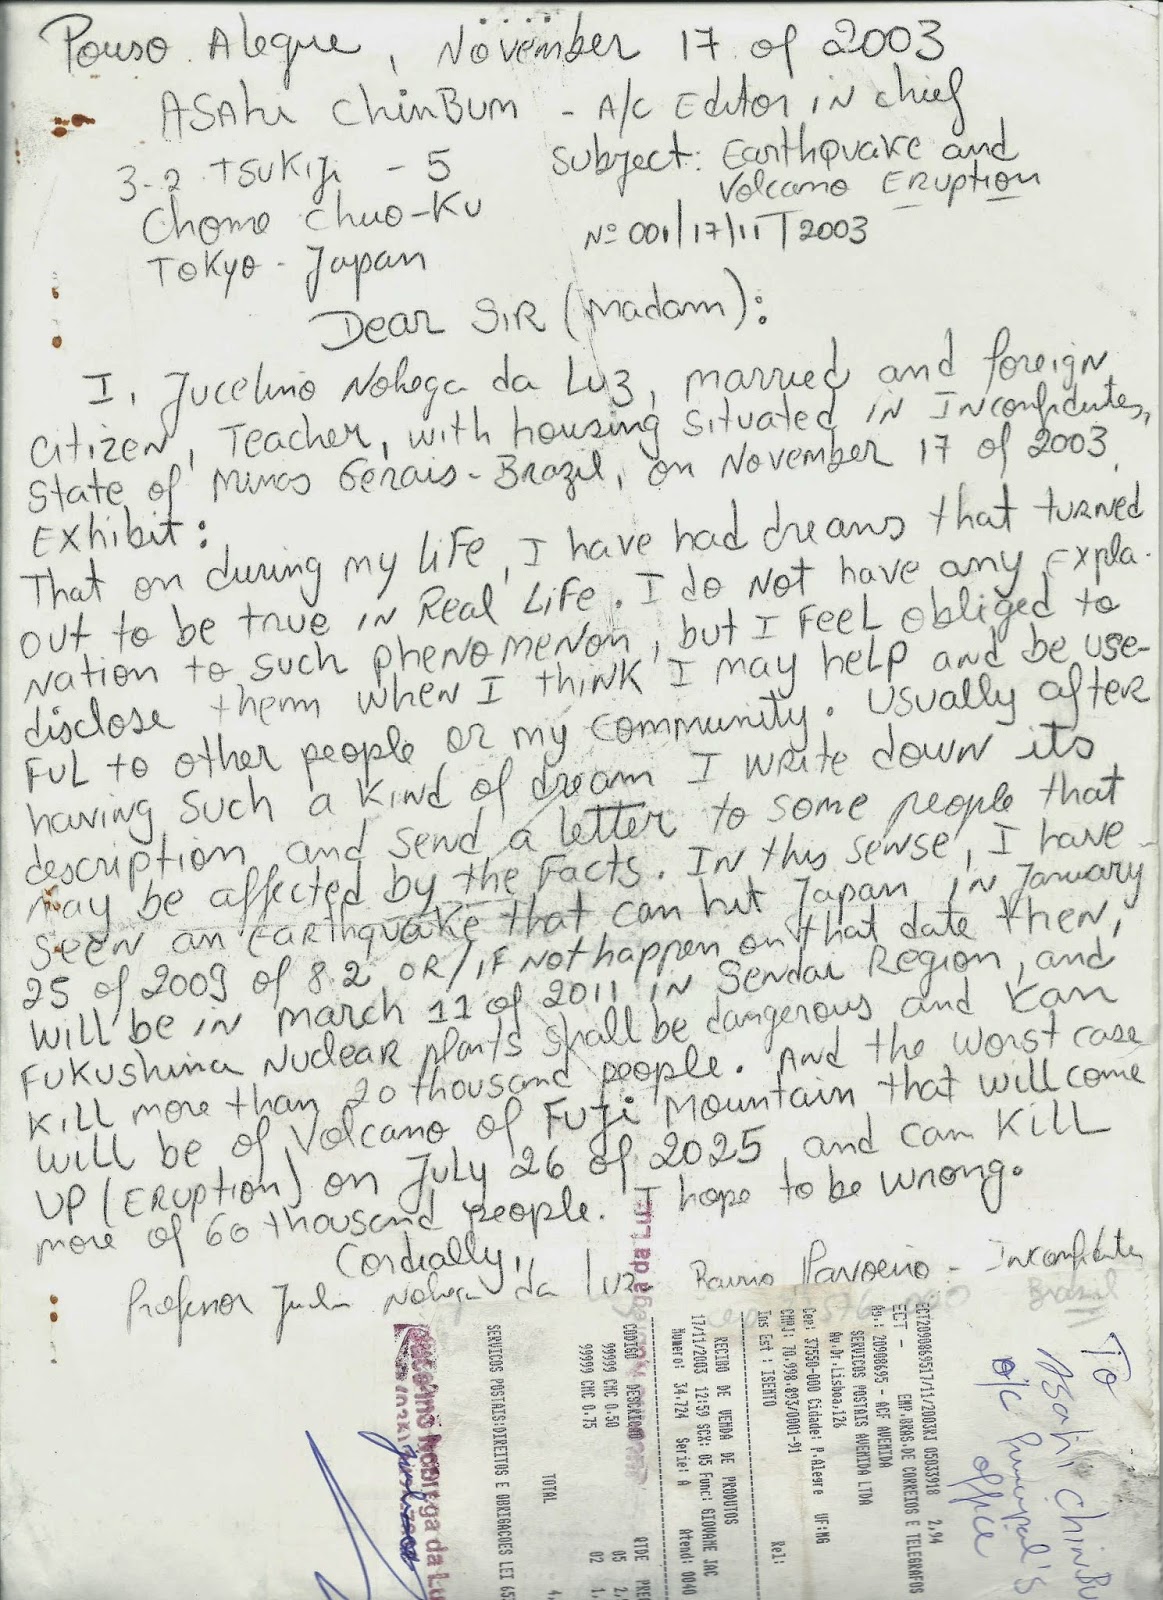 Pouso Alegre, November 17 of 2003
ASAHI ChinBUM - A/C Editor in chief
3-2 TSUKIJI - 5
Chome Chuo-Ku
TOKYO - Japan
Subject: Earthquake and
Volcano ERUPTION
Nº 001/17/11/2003
Dear SIR (Madam):
I, Jucelino Nobrega da Luz, married and foreign
Citizen, Teacher, with housing situated in Inconfidentes,
State of Minas Gerais - Brazil, on November 17 of 2003,
Exhibit:
That on during my life, I have had dreams that turned
out to be true in Real Life. I do not have any expla-
nation to such phenomenon, but I feel obliged to
disclose them when I think I may help and be use-
ful to other people or my community. Usually after
having such a kind of dream I write down its
description and send a letter to some people that
may be affected by the facts. In this sense, I have
seen an Earthquake that can hit Japan in January
25 of 2009 of 8.2 OR/if not happen on that date then,
will be in March 11 of 2011 in Sendai Region, and
Fukushima Nuclear plants shall be dangerous and can
kill more than 20 thousand people. And the worst case
will be of Volcano of Fuji Mountain that will come
UP (ERUPTION) on July 26 of 2025 and can Kill
more of 60 thousand people. I hope to be wrong.
Cordially,,
Professor Nobrega da Luz - Inconfidentes
Brasil
To
Asahi ChinBu
A/C Principal's
office
ECT2090869517/11/2003KJ 05033918 2,94
ECT - EMP.BRAS.DE CORREIOS E TELEGRAFOS
Ag.: 20908695 - ACF AVENIDA
SERVICOS POSTAIS AVENIDA LTDA
Av.Dr.Lisboa,126
Cep: 37550-000 Cidade: P.Alegre UF:MG
CNPJ: 70.998.893/0001-91
Ins Est : ISENTO Rel:
RECIBO DE VENDA DE PRODUTOS
17/11/2003 12:59 SCX: 05 Func: GIOVANE JAC
Numero: 34.724 Serie: A Atend: 0040
CODIGO DESCRICAO QTDE PRE
99999 CMC 0.50 05 2,
99999 CMC 0.75 02 1,
TOTAL 4,
SERVICOS POSTAIS:DIREITOS E OBRIGACOES LEI 653
Nobrega da Lu